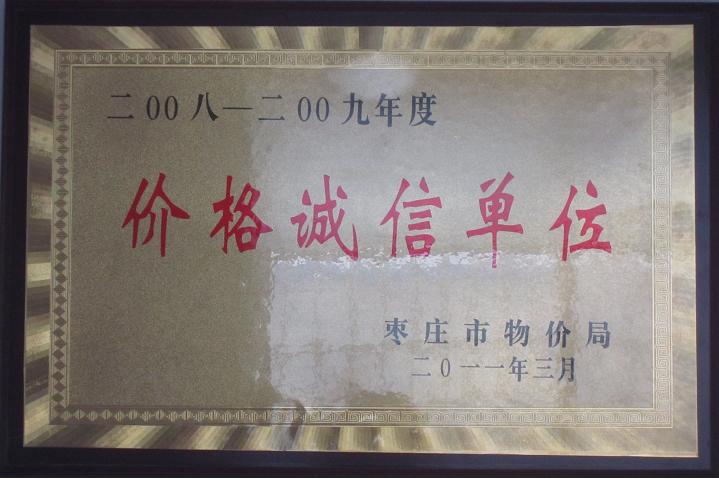 二00八—二00九年度
价格诚信单位
枣庄市物价局
二0一一年三月